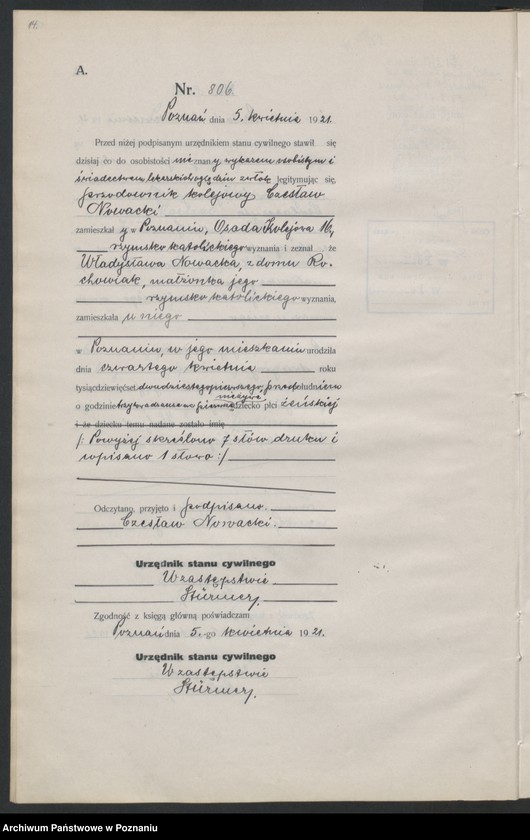 14.
A.
Nr. 806
Poznań dnia 5. kwietnia 1921.
Przed niżej podpisanym urzędnikiem stanu cywilnego stawił się
dzisiaj co do osobistości nieznany, wykazem osobistym i
świadectwem lekarskich oględzin zwłok legitymując się,
przodownik kolejowy Czesław
Nowacki
zamieszkały w Poznaniu, Osada Kolejowa 16,
rzymsko katolickiego wyznania i zeznał że
Władysława Nowacka, z domu Ro-
chowiak, małżonka jego
rzymsko katolickiego wyznania,
zamieszkała u niego
w Poznaniu, w jego mieszkaniu urodziła
dnia czwartego kwietnia roku
tysiącdziewięćset dwudziestego pierwszego, przedpołudniem
o godzinie dziecko płci żeńskiej
nieżywe
i że dziecku temu nadane zostało imię
/: Powyżej skreślono 7 słów druku i
wpisano 1 słowo :/
Odczytano, przyjęto i podpisano.
Czesław Nowacki.
Urzędnik stanu cywilnego
W zastępstwie
Stürmer.
Zgodność z księgą główną poświadczam
Poznań dnia 5.-go kwietnia 1921.
Urzędnik stanu cywilnego
W zastępstwie
Stürmer.
Archiwum Państwowe w Poznaniu